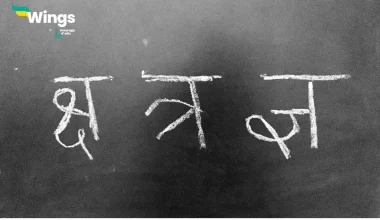 Wings
क्ष त्र ज्ञ